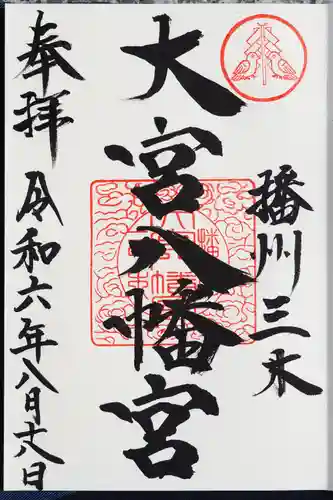 播州三木
大宮八幡宮
奉拝
令和六年八月十八日